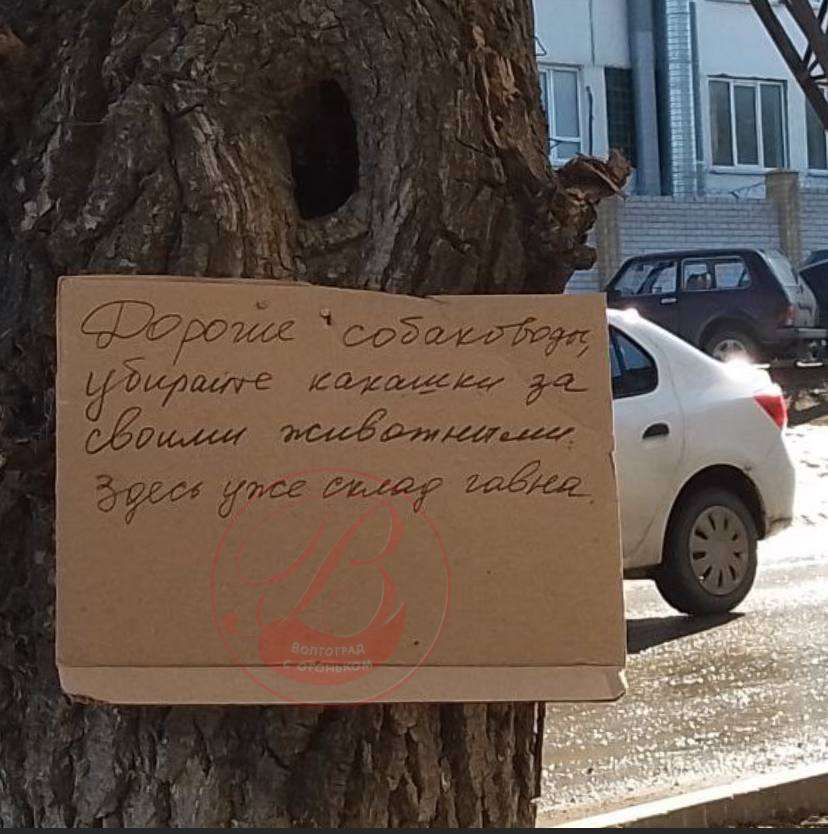 Дорогие собаководы,
убирайте какашки за
своими животными.
Здесь уже склад гавна.
ВОЛГОГРАД
С ОГОНЬКОМ